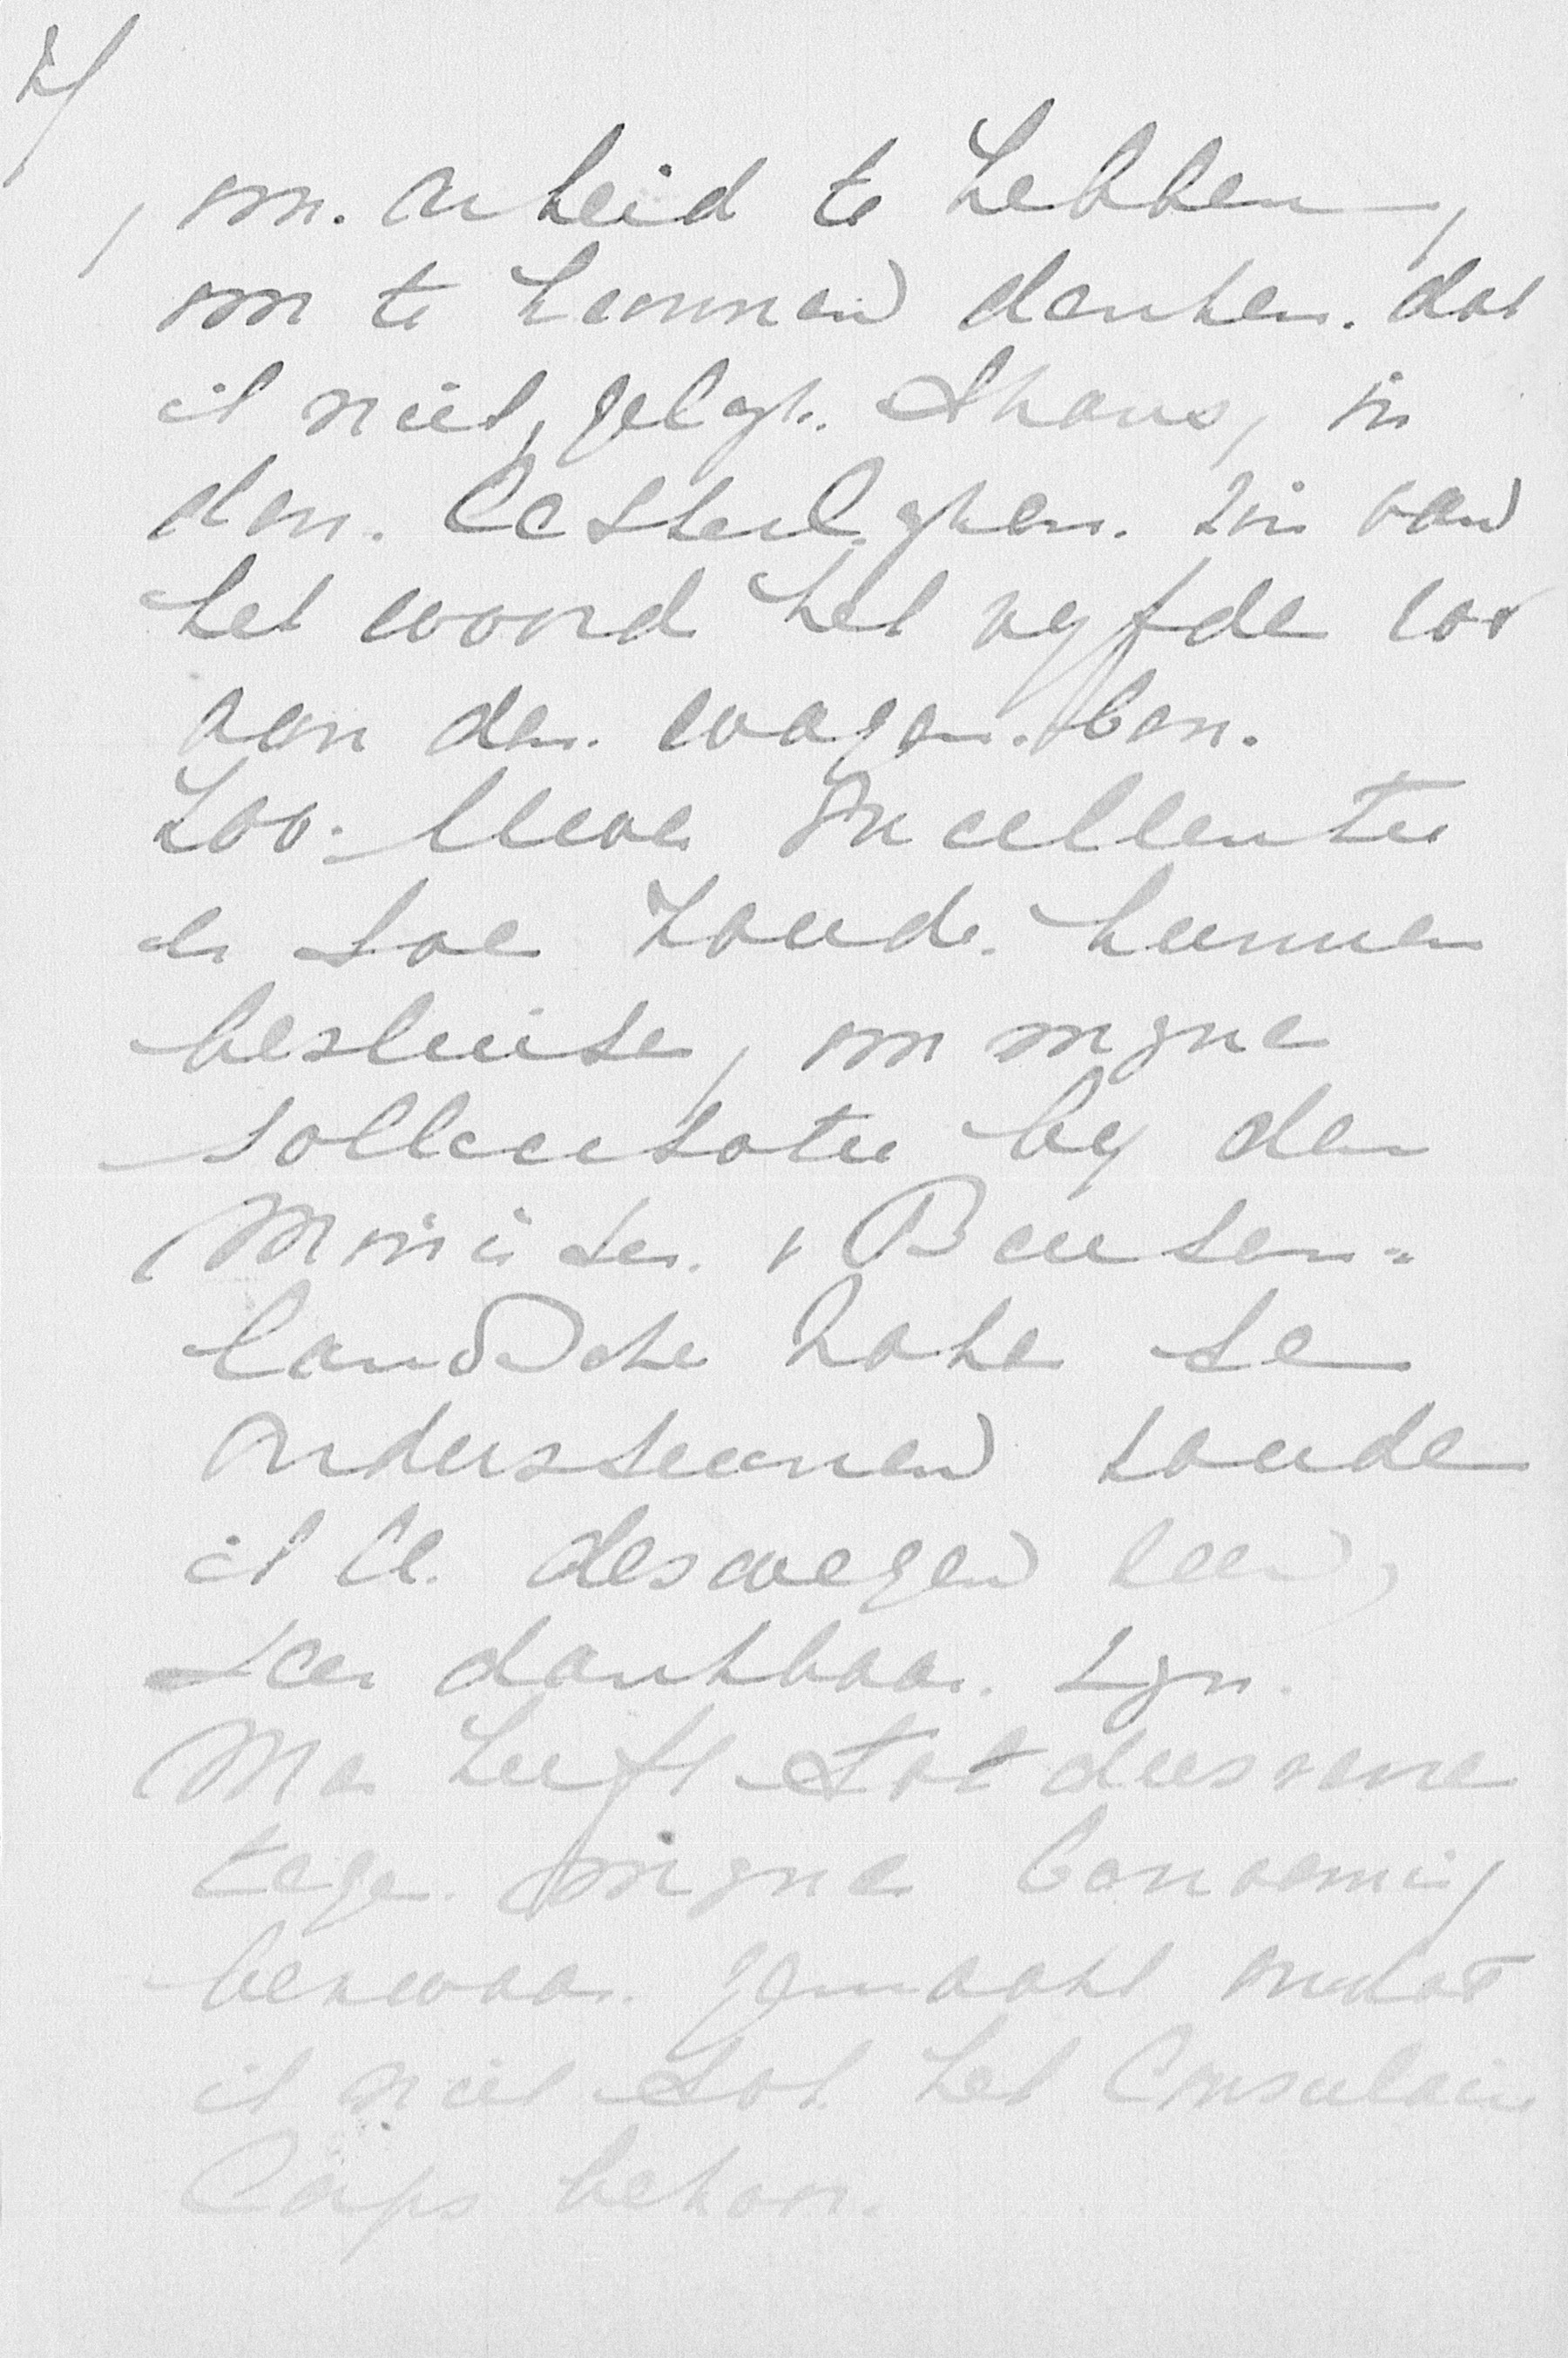 om arbeid te hebben,
om te kunnen denken dat
ik niet, gelyk thans, in
den letterlyken zin van
het woord het vyfde rad
aan den wagen ben.
Zoo Uwe Excellentie
er toe zoude kunnen
besluiten, om myne
sollicitatie by den
Minister v Buiten-
landsche Zake te
ondersteunen zoude
ik U deswegen zeer,
zeer dankbaar zyn.
Men heeft tot dusverre
tegen myne benoeming
bezwaar gemaakt omdat
ik niet tot het Consulair
Corps behoor.